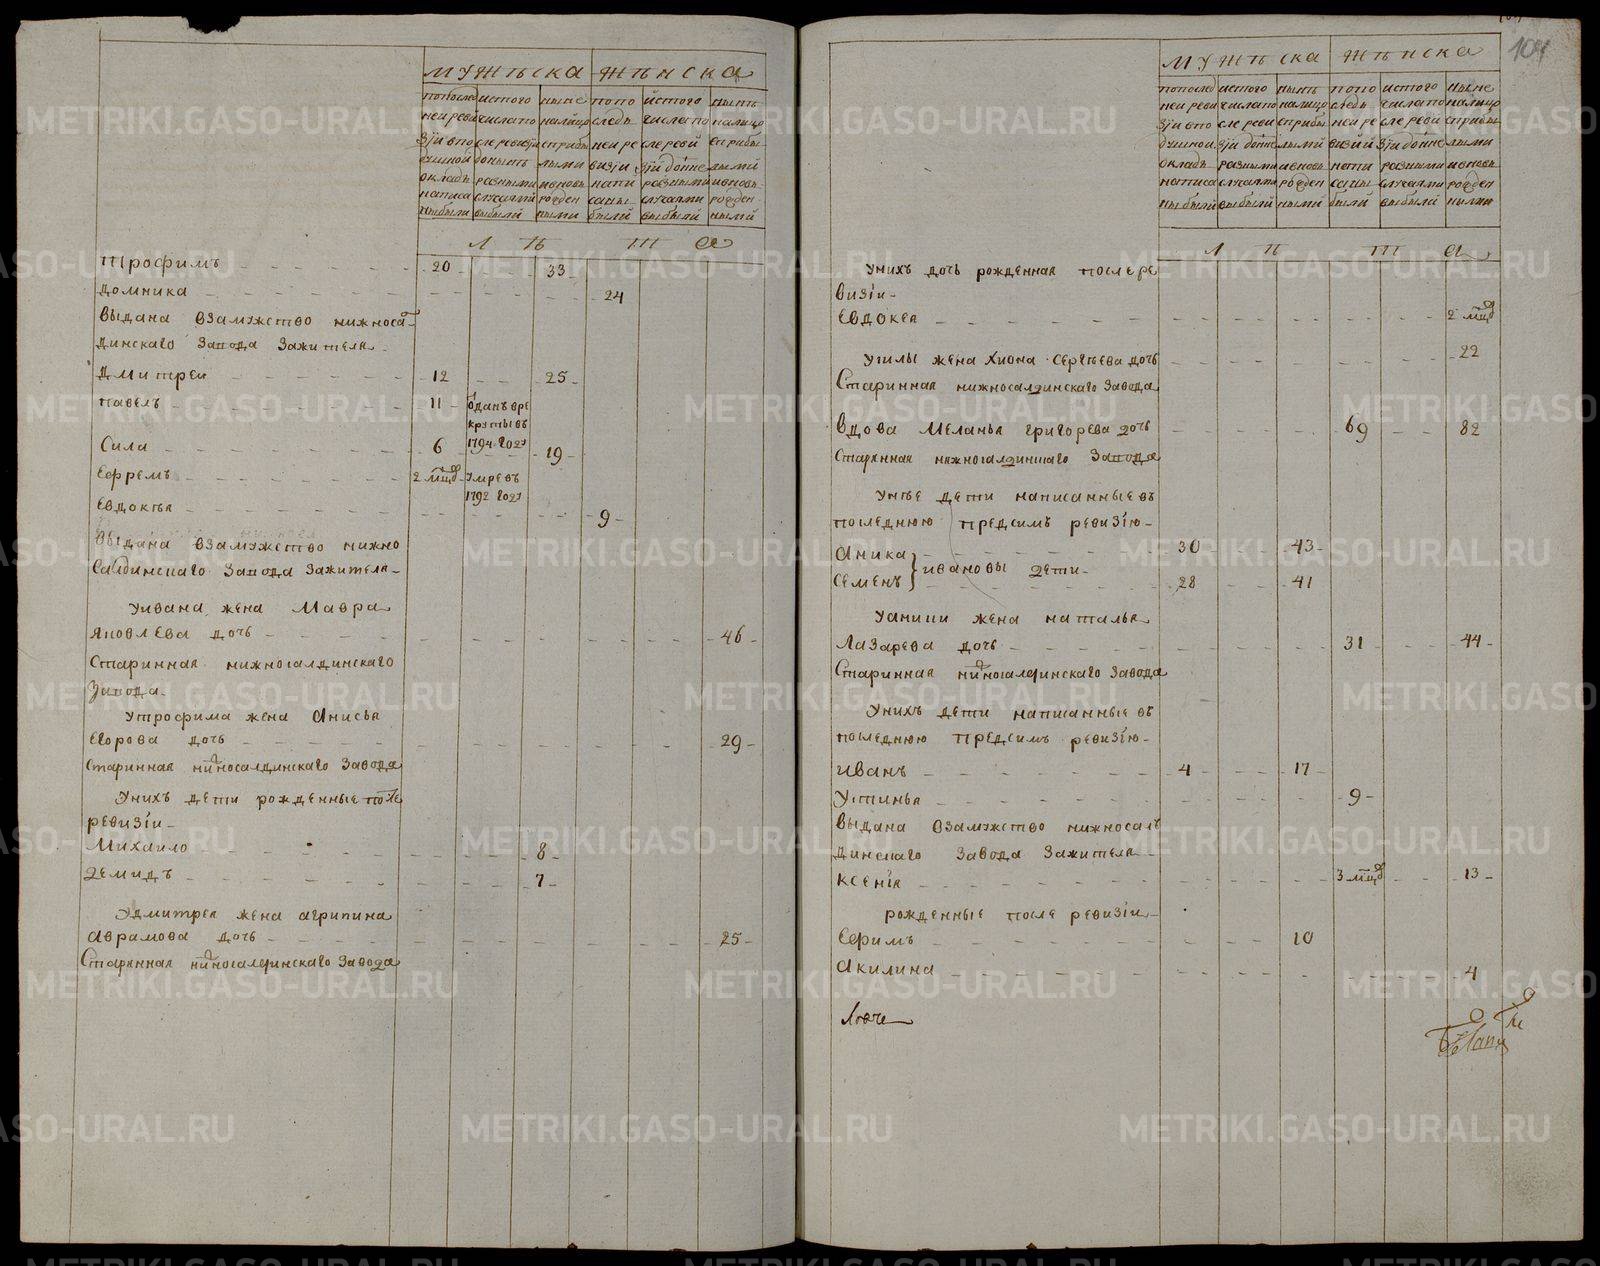 мужьска женска
попослед неи реви зіи впо душнои окладъ написа ны были
истого числапо слеревизіи донынъ разными случаями выбыли
нынъ налицо сприбы лыми ивновь рожден ными
попо следъ неи ре визіи напи саны были
истого числапо слереви зіи донне разными случаями выбыли
нынъ налицо сприбы лыми ивновь рожден ными
Л ѣ т а
Трофимъ 20 33
Домника 24
выдана взамужество нижноса
динскаго Завода Зажителя
Дмитреи 12 25
павелъ 11 оданъ вре
круты въ
1794 году
Сила 6 19
Ефремъ 2 мцъ умре въ
1792 году
Евдокѣя 9
выдана взамужество нижно
Салдинскаго Завода зажителя
Уивана жена Мавра
Яковлева дочь 46
Старинная нижносалдинскаго
Завода
Утрофима жена Анисья
Егорова дочь 29
Старинная нижносалдинскаго Завода
Унихъ дети рожденные после
ревизіи
Михаило 8
Демидъ 7
Удмитрея жена агрипина
Аврамова дочь 25
Старинная нижносалдинскаго Завода
104
мужьска женска
попослед неи реви зіи впо душнои окладъ написа ны были
истого числапо слереви зіи донне разными случаями выбыли
нынъ налицо сприбы лыми ивновь рожден ными
попо следъ неи ре визіи напи саны были
истого числапо слереви зіи донне разными случаями выбыли
ныне налицо сприбы лыми ивновь рожден ными
Л ѣ т а
Унихъ дочь рожденная послере
визіи
Евдокея 2 мцъ
Усилы жена Хиона Сергѣева дочь 22
Старинная нижносалдинскаго Завода
Вдова Меланья григорева дочь 69 82
Старинная нижносалдинскаго Завода
Унѣе дети написанные въ
последнюю предсимъ ревизію
Аника 30 43
ивановы дети
Семенъ 28 41
Уаники жена наталья
Лазарева дочь 31 44
Старинная нижносалдинскаго Завода
Унихъ дети написанные въ
последнюю предсимъ ревизію
Иванъ 4 17
Устинья 9
выдана взамужество нижносал
динскаго Завода Зажителя
Ксенія 3 мцъ 13
рожденные после ревизіи
Ефимъ 10
Акилина 4
METRIKI.GASO-URAL.RU